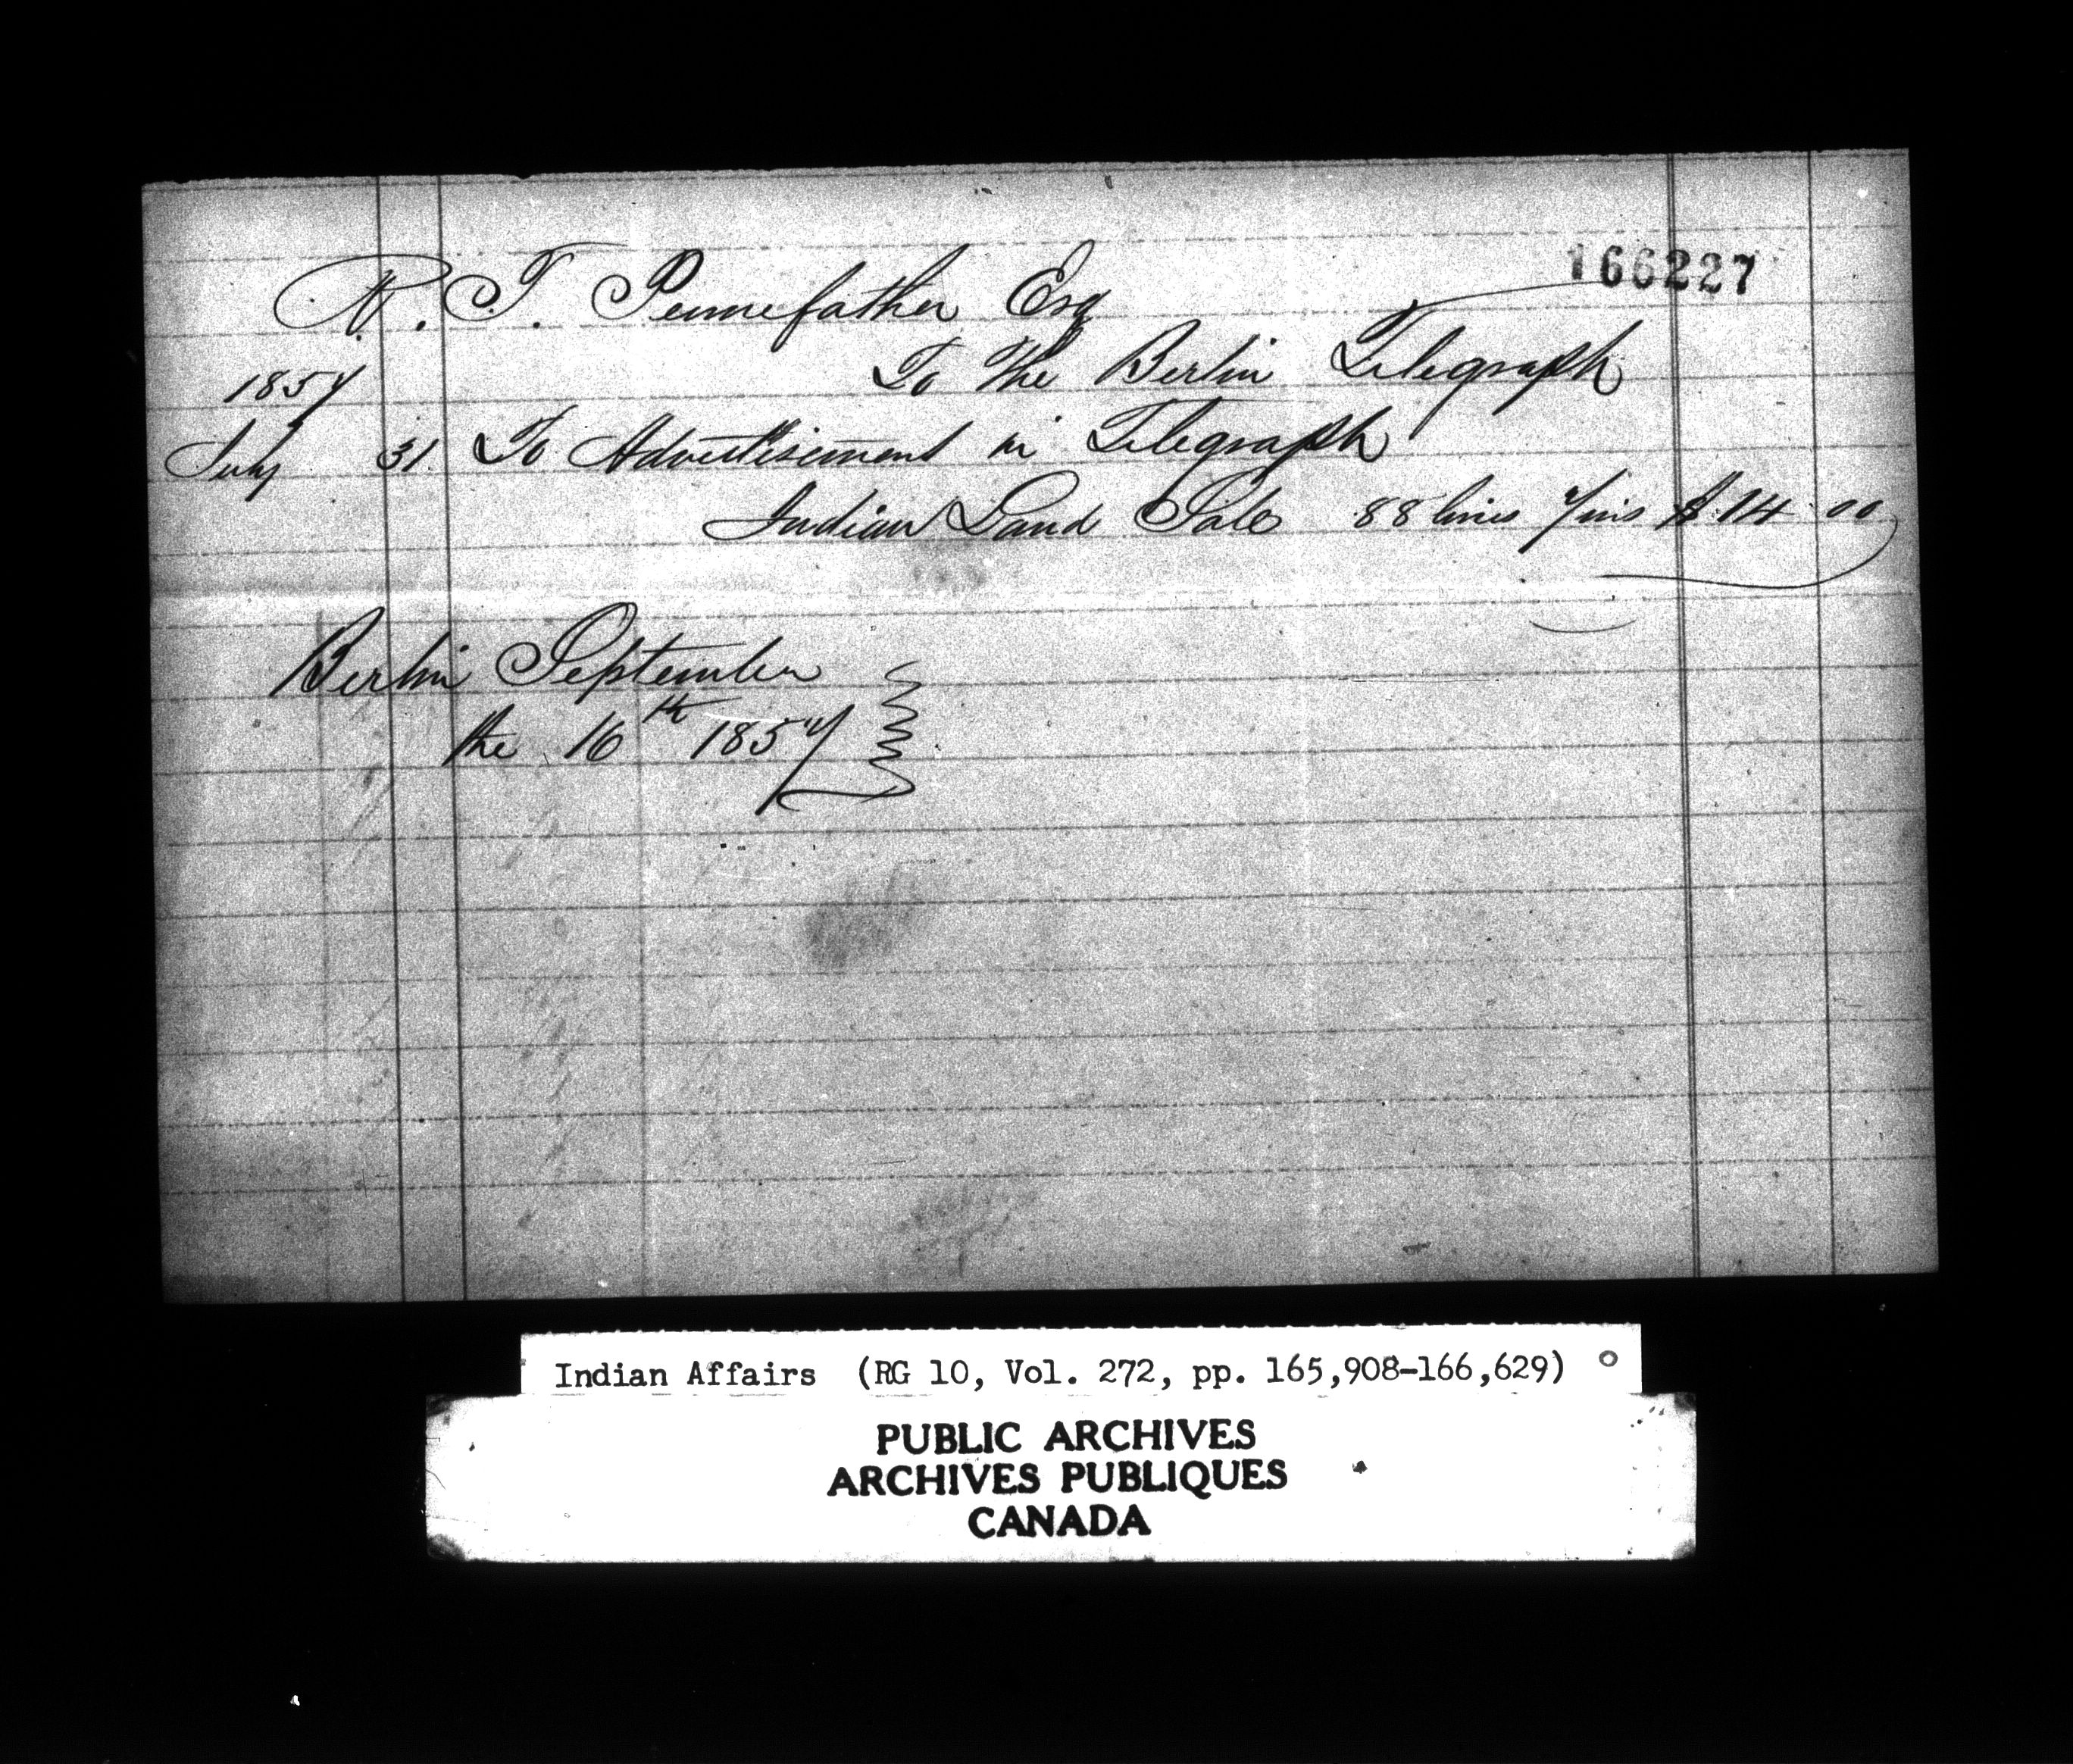 166227
R. T. Pennefather Esq
To The Berlin Telegraph
1857
July 31 To Advertisement in Telegraph
Indian Land Sale 88 lines 7 ins $ 14 00
Berlin September
the 16th 1857
Indian Affairs (RG 10, Vol. 272, pp. 165,908-166,629)
PUBLIC ARCHIVES
ARCHIVES PUBLIQUES
CANADA